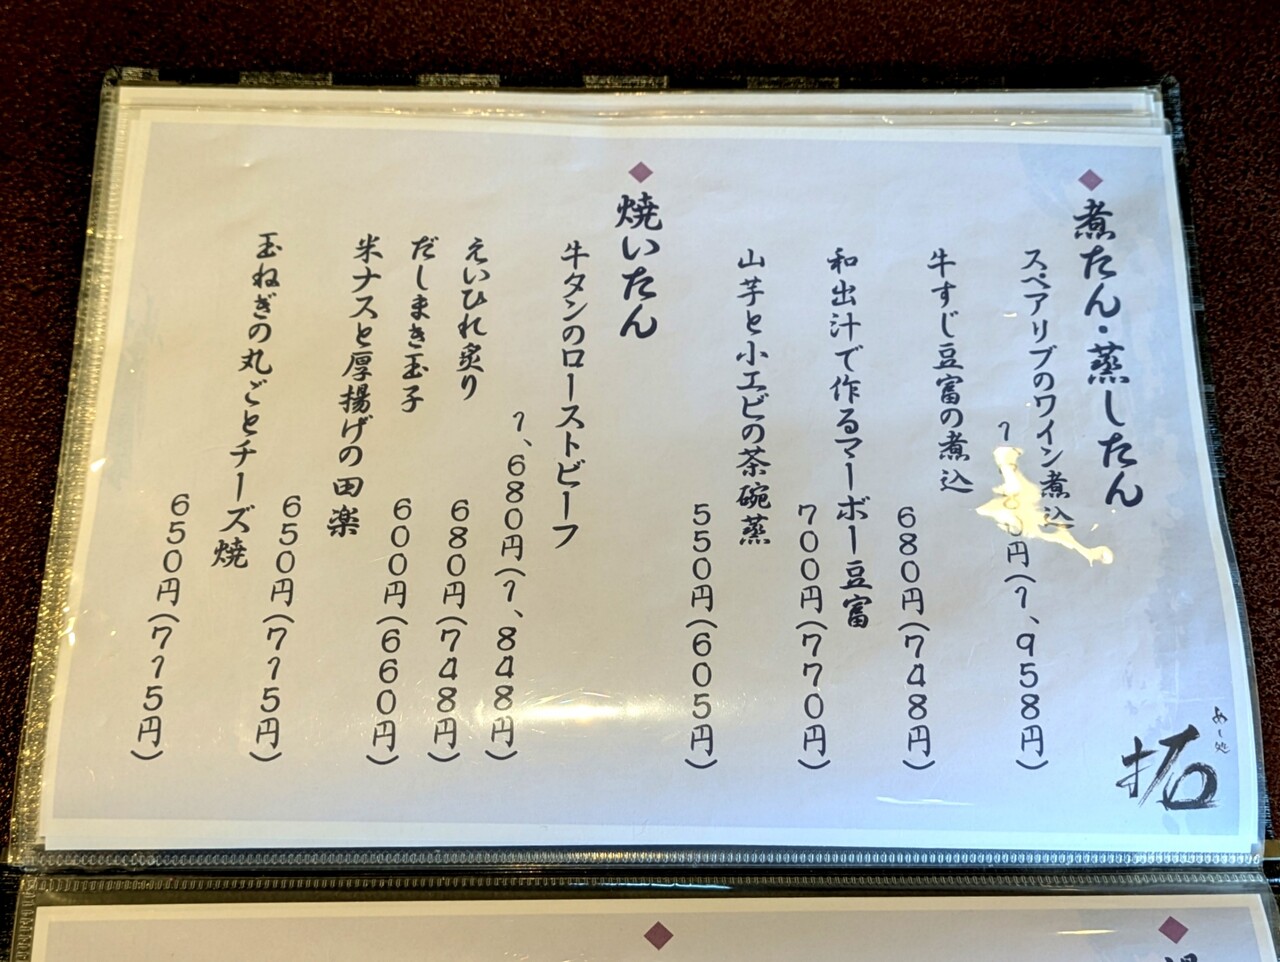 ◆煮たん・蒸したん
スペアリブのワイン煮込
0円(1、958円)
牛すじ豆富の煮込
680円(748円)
和出汁で作るマーボー豆富
700円(770円)
山芋と小エビの茶碗蒸
550円(605円)
◆焼いたん
牛タンのローストビーフ
1、680円(1、848円)
えいひれ炙り
680円(748円)
だしまき玉子
600円(660円)
米ナスと厚揚げの田楽
650円(715円)
玉ねぎの丸ごとチーズ焼
650円(715円)
めし処
拓